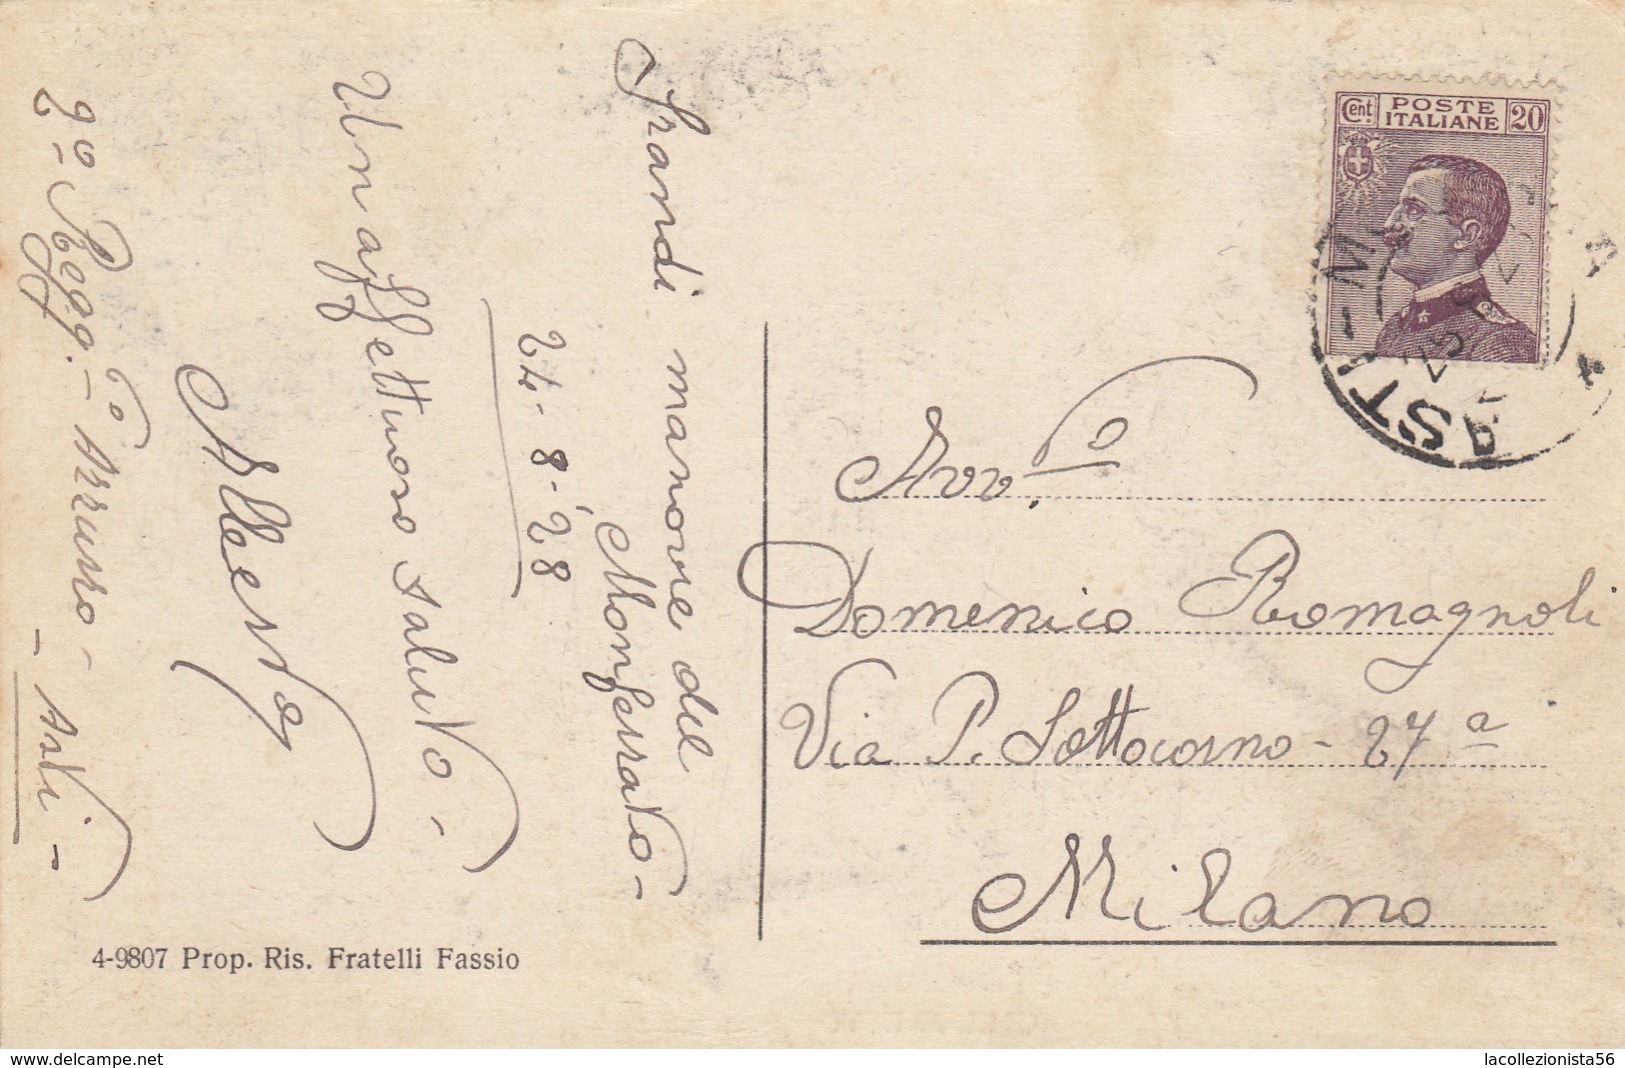 Grandi manovre del
Monferrato -
24-8-'28
Un affettuoso saluto -
9º Regg.
- Asti -
Cent. POSTE ITALIANE 20
ASTI
Avv.º
Domenico Romagnoli
Via P. Sottocorno - 27ª
Milano
4-9807 Prop. Ris. Fratelli Fassio
www.delcampe.net
lacollezionista56